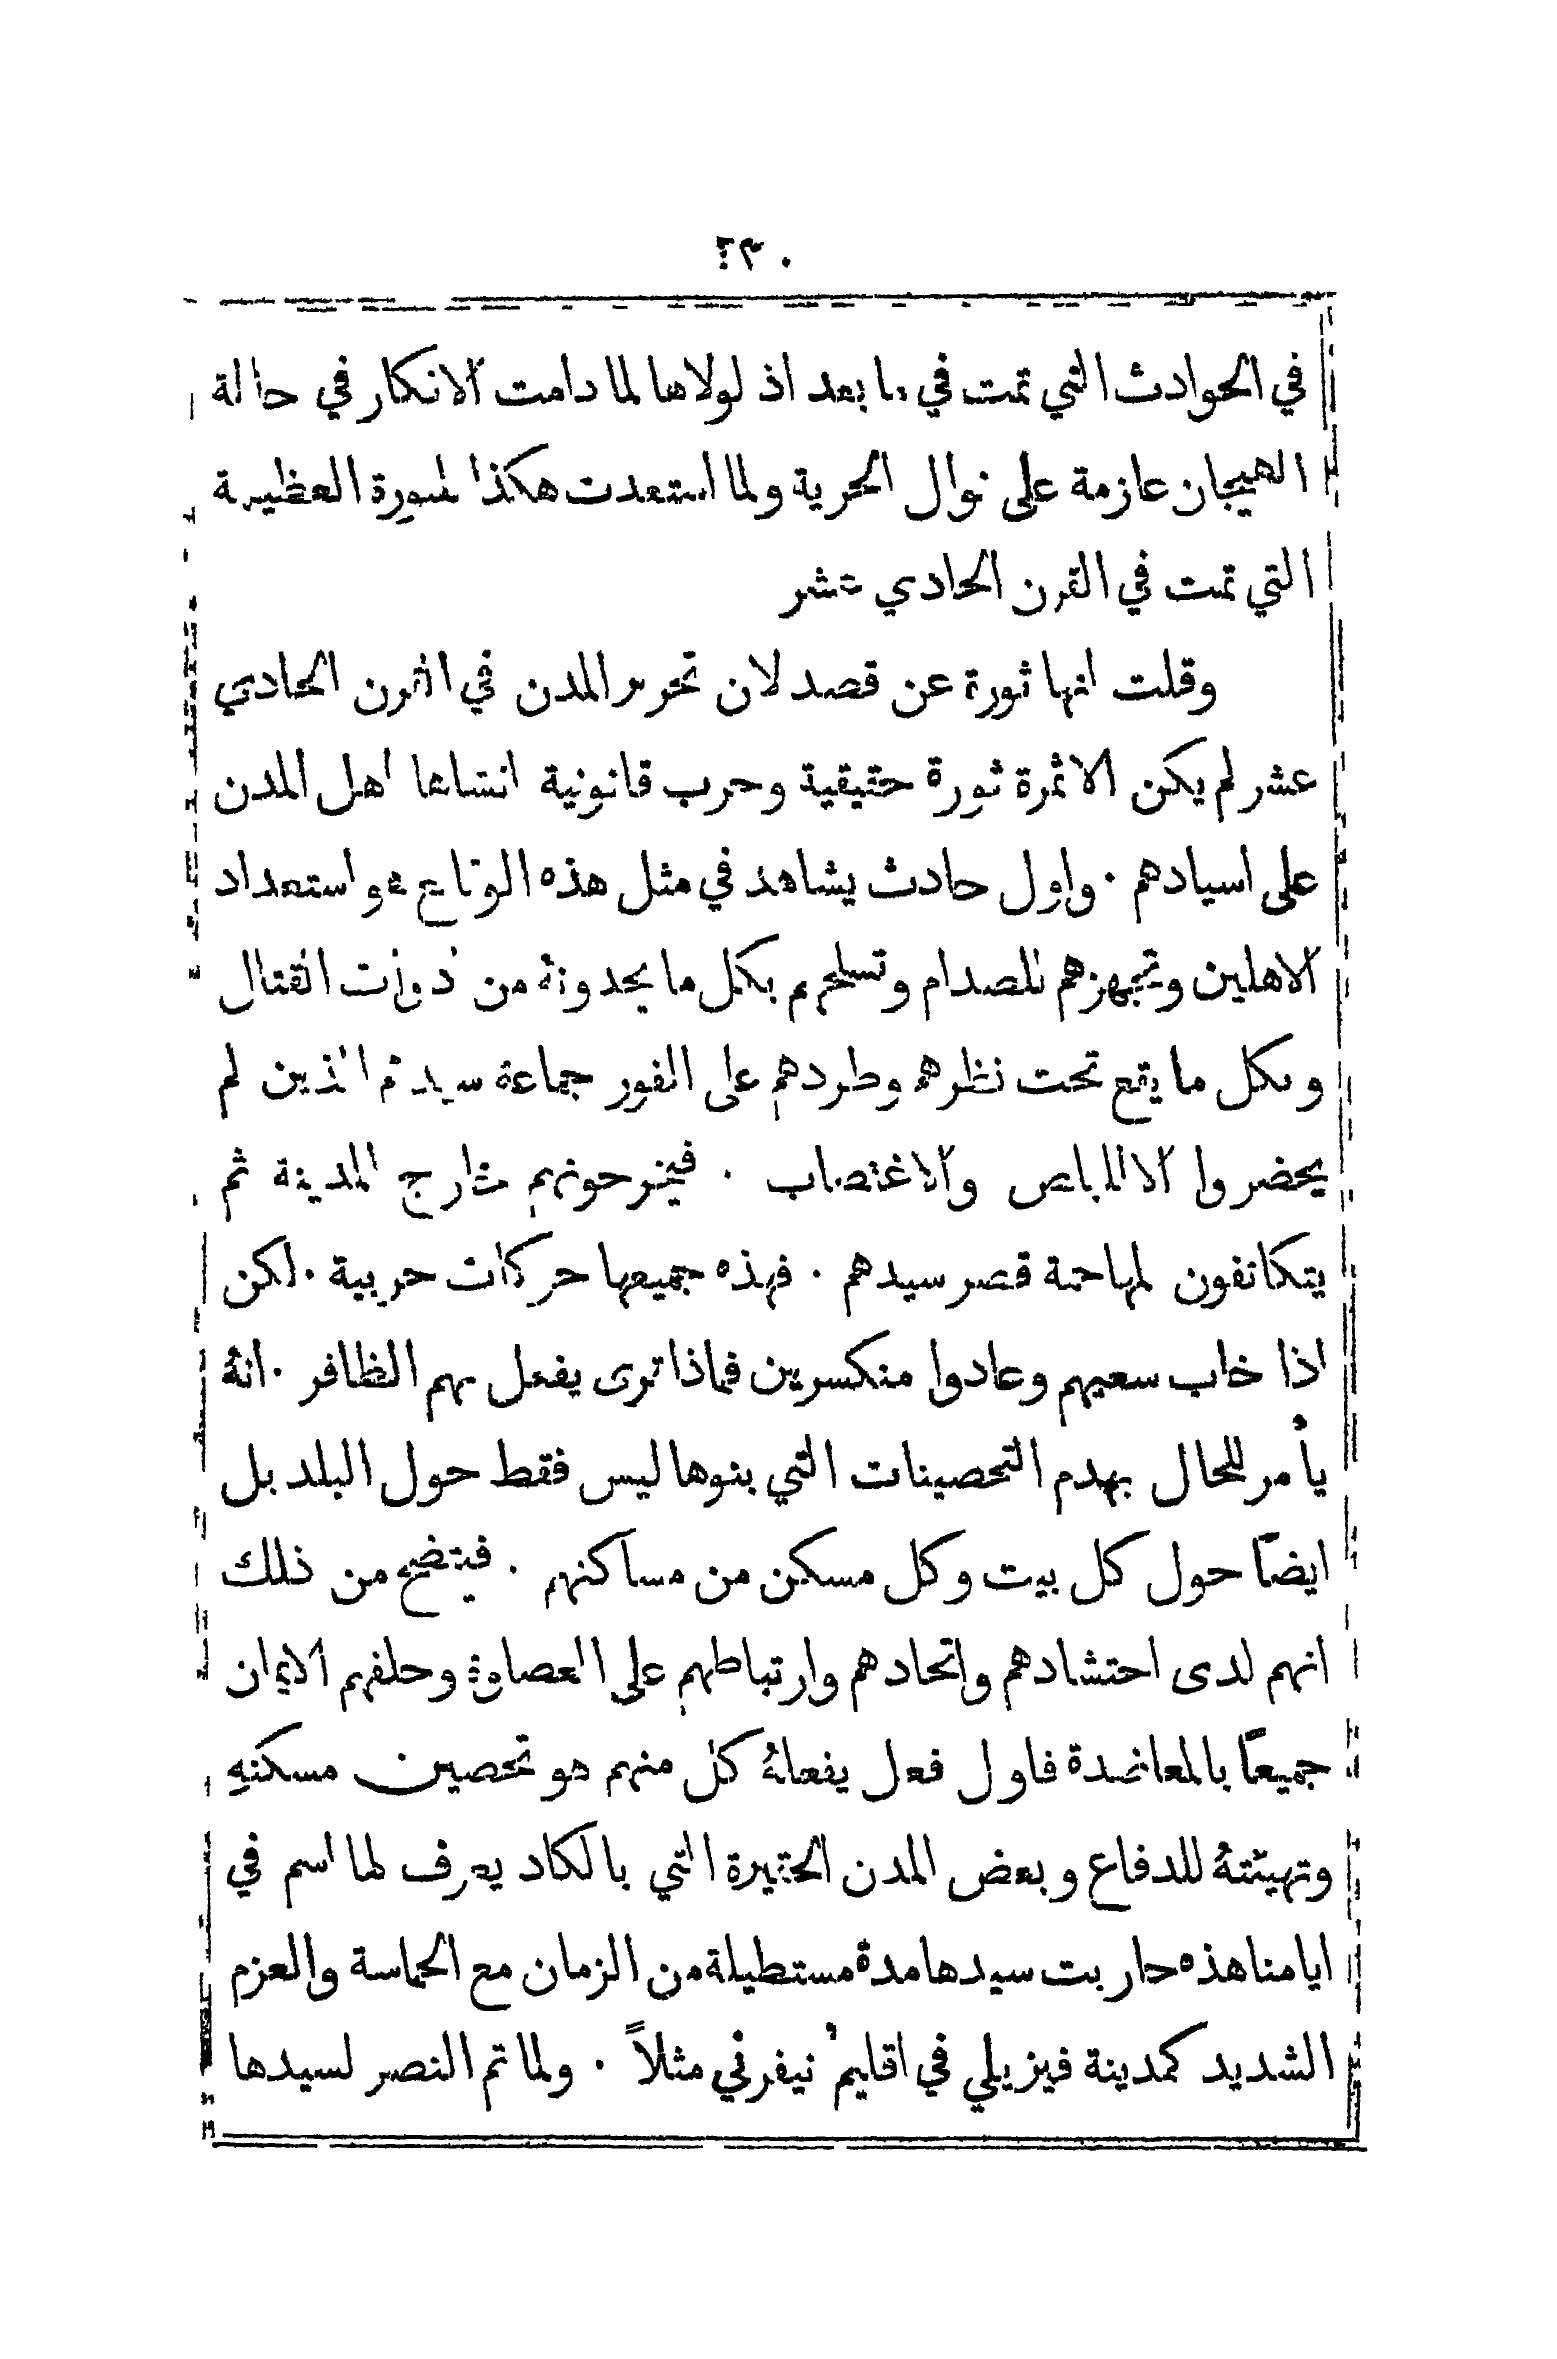 ٢٣٠
في الحوادث التي تمت في ما بعد اذ لولاها لما دامت الافكار في حالة
الهيجان عازمة على نوال الحرية ولما استعدت هكذا لثورة العظيمة
التي تمت في القرن الحادي عشر
وقلت انها ثورة عن قصد لان تحرير المدن في القرن الحادي
عشر لم يكن الا ثمرة ثورة حقيقية وحرب قانونية انشاها اهل المدن
على اسيادهم . واول حادث يشاهد في مثل هذه الوقايع هو استعداد
الاهلين وتجهزهم للصدام وتسلحهم بكل ما يجدونهُ من ادوات القتال
وبكل ما يقع تحت نظرهم وطردهم على الفور جماعة سيدهم الذين لم
يحضروا الا للبلص والاغتصاب . فيخرجونهم خارج المدينة ثم
يتكاتفون لمهاجمة قصر سيدهم . فهذه جميعها حركات حربية . لكن
اذا خاب سعيهم وعادوا منكسرين فماذا ترى يفعل بهم الظافر . انهُ
يأمر للحال بهدم التحصينات التي بنوها ليس فقط حول البلد بل
ايضًا حول كل بيت وكل مسكن من مساكنهم . فيتضح من ذلك
انهم لدى احتشادهم واتحادهم وارتباطهم على العصاوة وحلفهم الايمان
جميعًا بالمعاضدة فاول فعل يفعلهُ كل منهم هو تحصين مسكنهِ
وتهيئتهُ للدفاع وبعض المدن الحقيرة التي بالكاد يعرف لها اسم في
ايامنا هذه حاربت سيدها مدة مستطيلة من الزمان مع الحماسة والعزم
الشديد كمدينة فيزيلي في اقليم نيفرني مثلاً . ولما تم النصر لسيدها